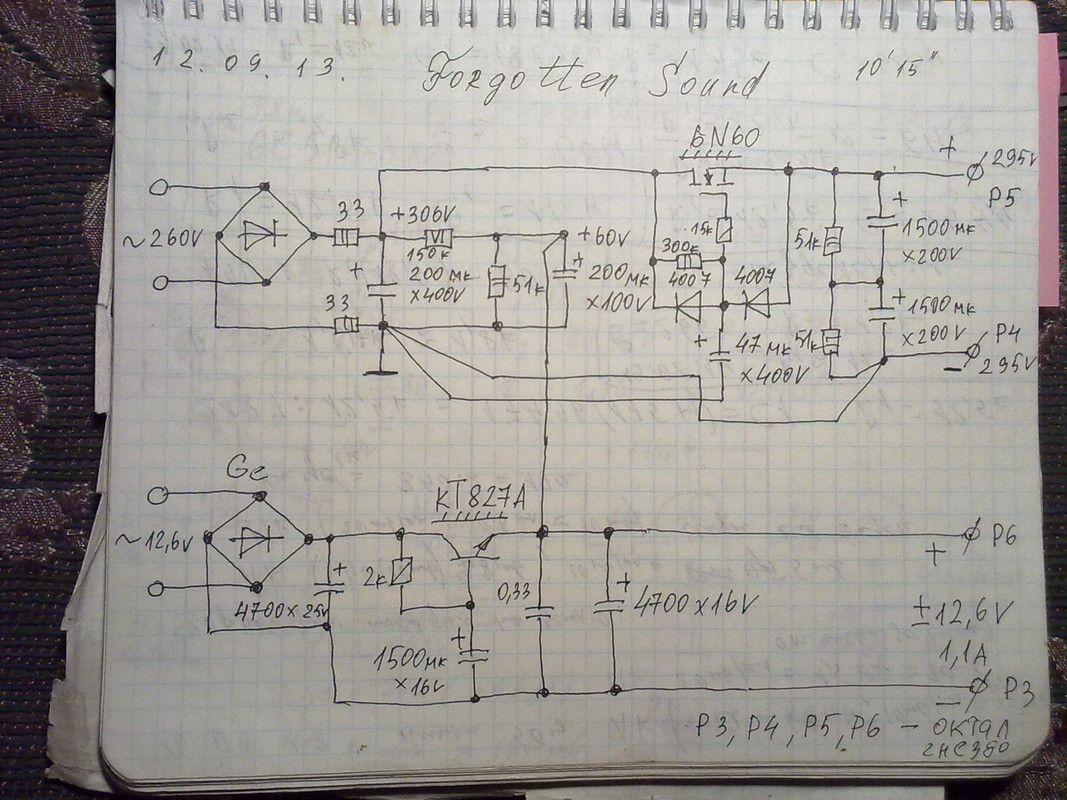 12.09.13.
Forgotten Sound
10'15"
BN60
+ 295V
P5
33
+306V
~260V
150к
200 мк
×400V
51к
+60V
200мк
×100V
15к
300к
4007
4007
47 мк
×400V
51к
1500 мк
×200V
51к
1500 мк
×200V
P4
- 295V
33
Ge
~12,6V
4700×25V
КТ827А
2к
1500мк
×16V
0,33
4700×16V
P6
+
±12,6V
1,1A
- P3
P3, P4, P5, P6 - ОКТАЛ